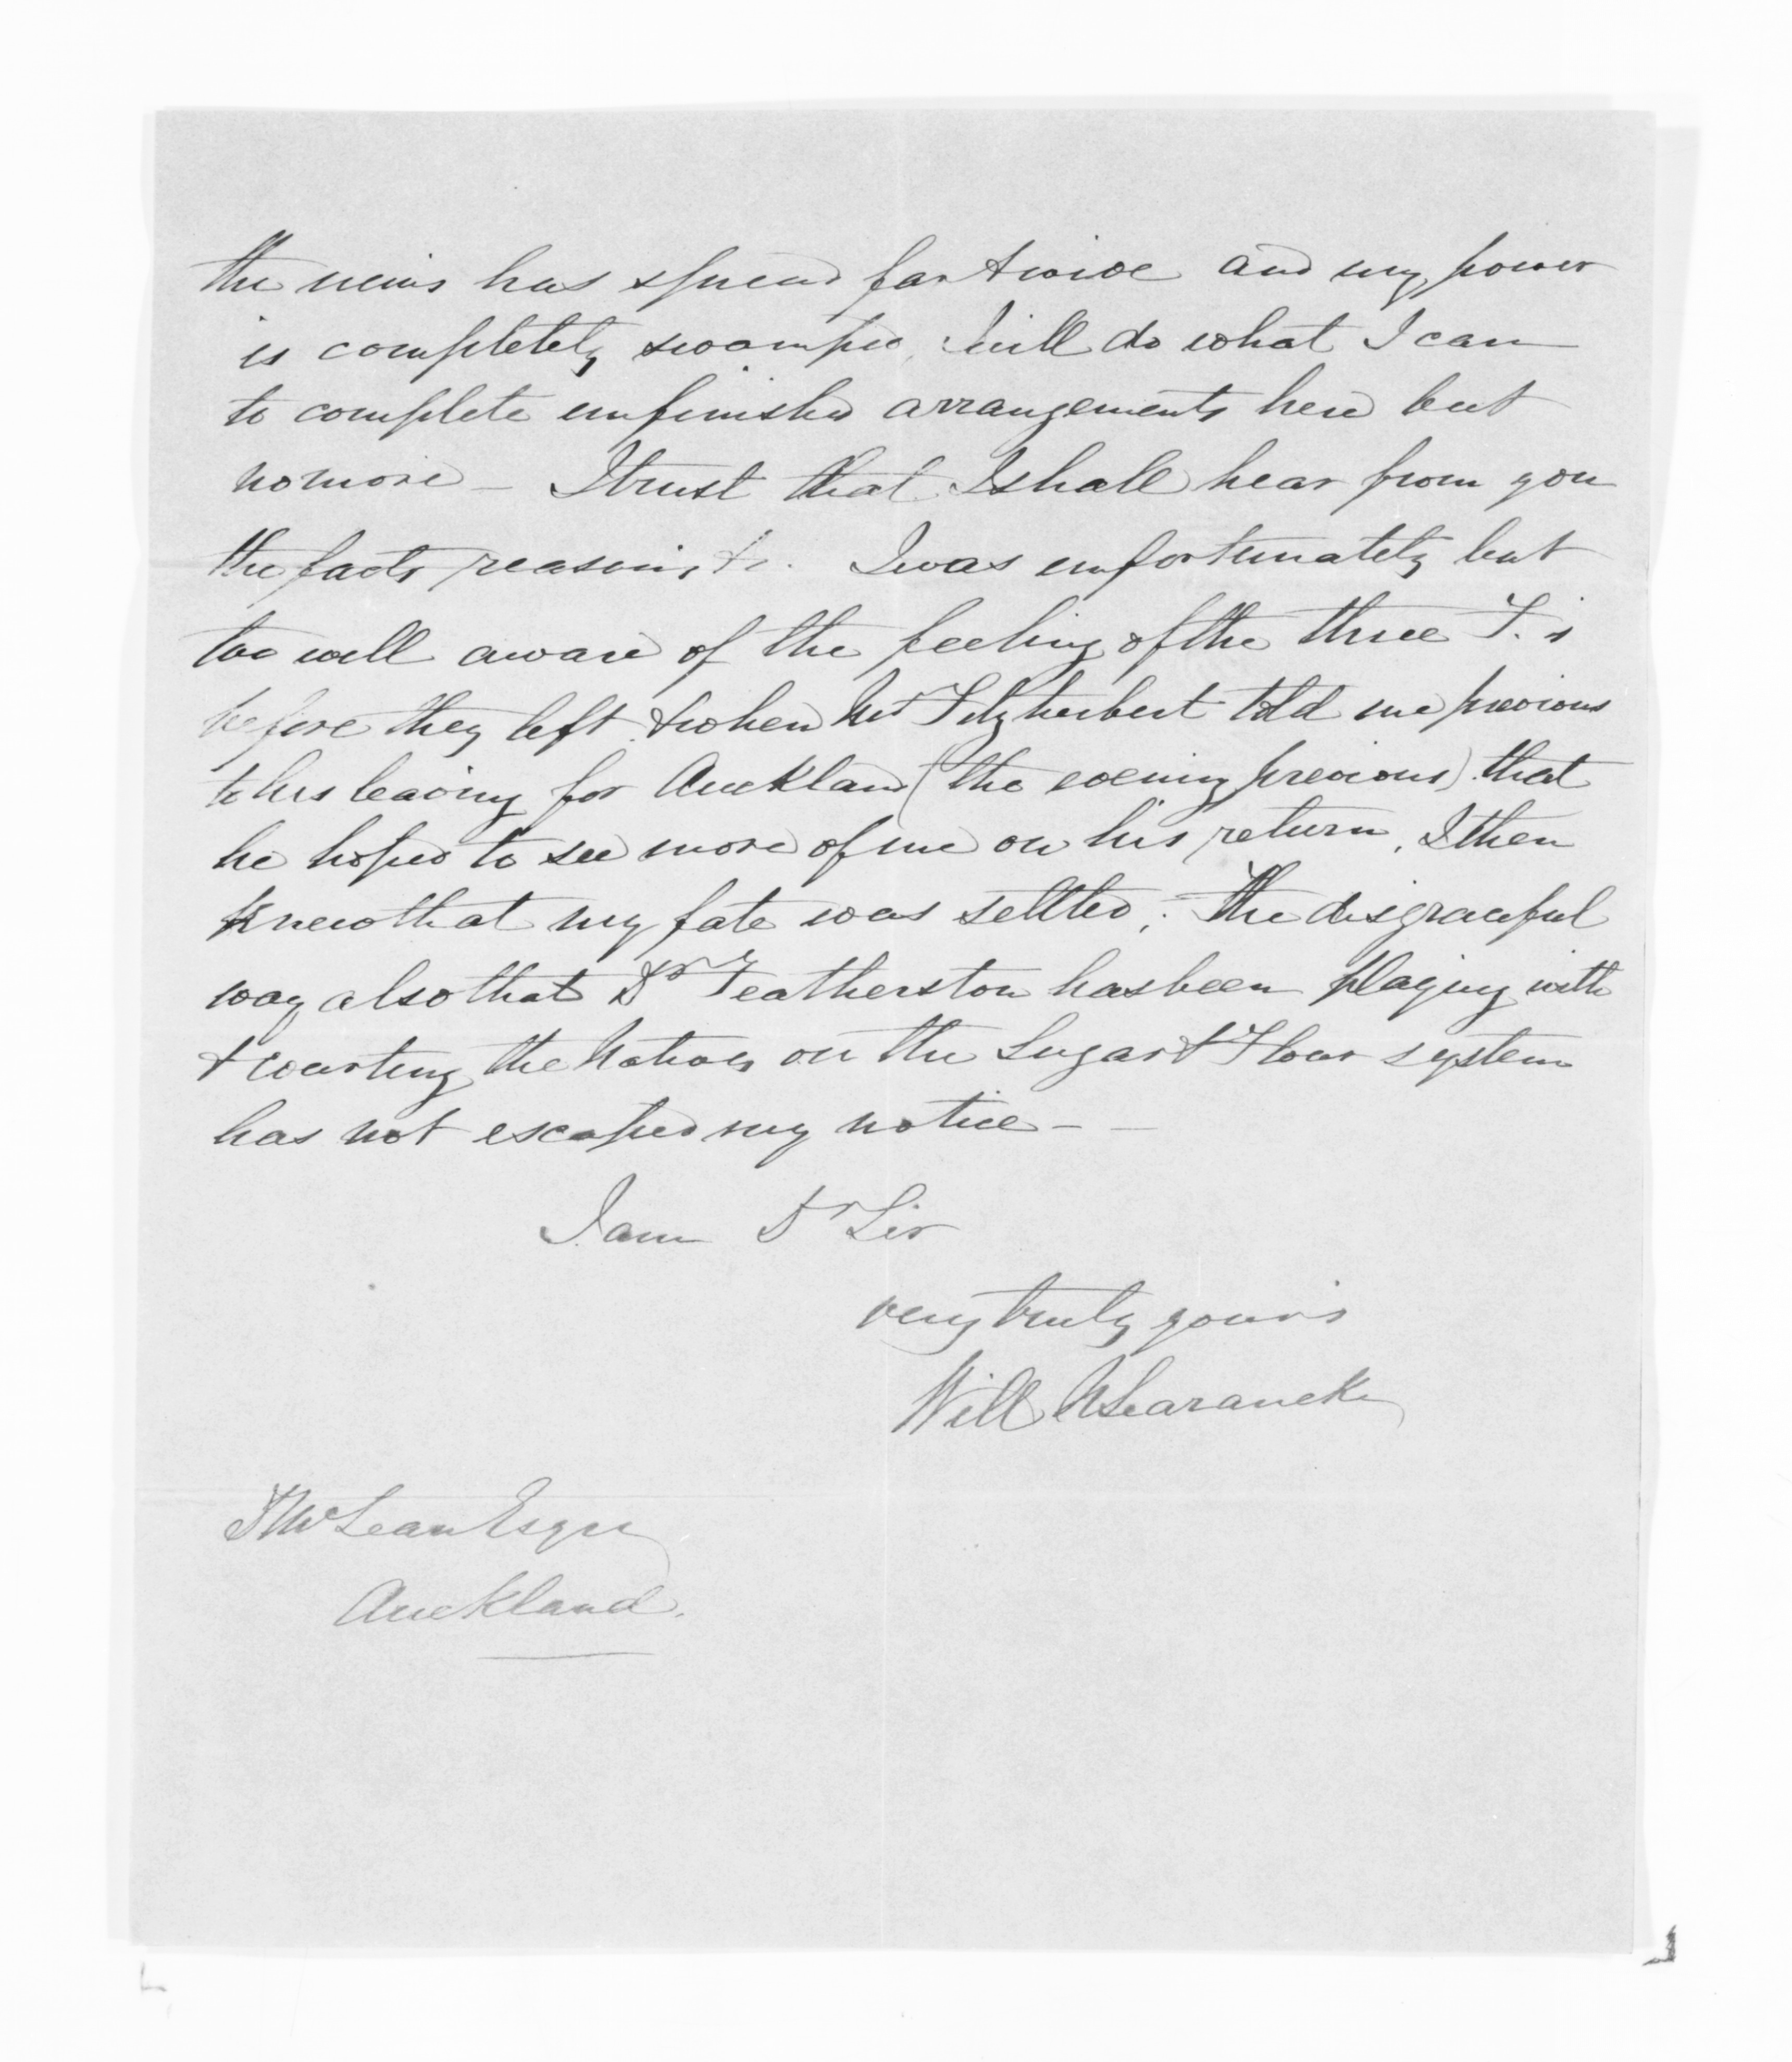 the news has spread far & wide and my power
is completely swamped, I will do what I can
to complete unfinished arrangements here but
no more — I trust that I shall hear from you
the facts, reasons, &c. I was unfortunately but
too well aware of the feeling of the three F.'s
before they left & when Mr Fitzherbert told me previous
to his leaving for Auckland (the evening previous) that
he hoped to see more of me on his return, I then
knew that my fate was settled; The disgraceful
way also that Dr Featherston has been playing with
& courting the Natives on the Sugar & Flour system
has not escaped my notice — —
I am Dr Sir
very truly yours
Will N Searancke
D McLean Esqre
Auckland.